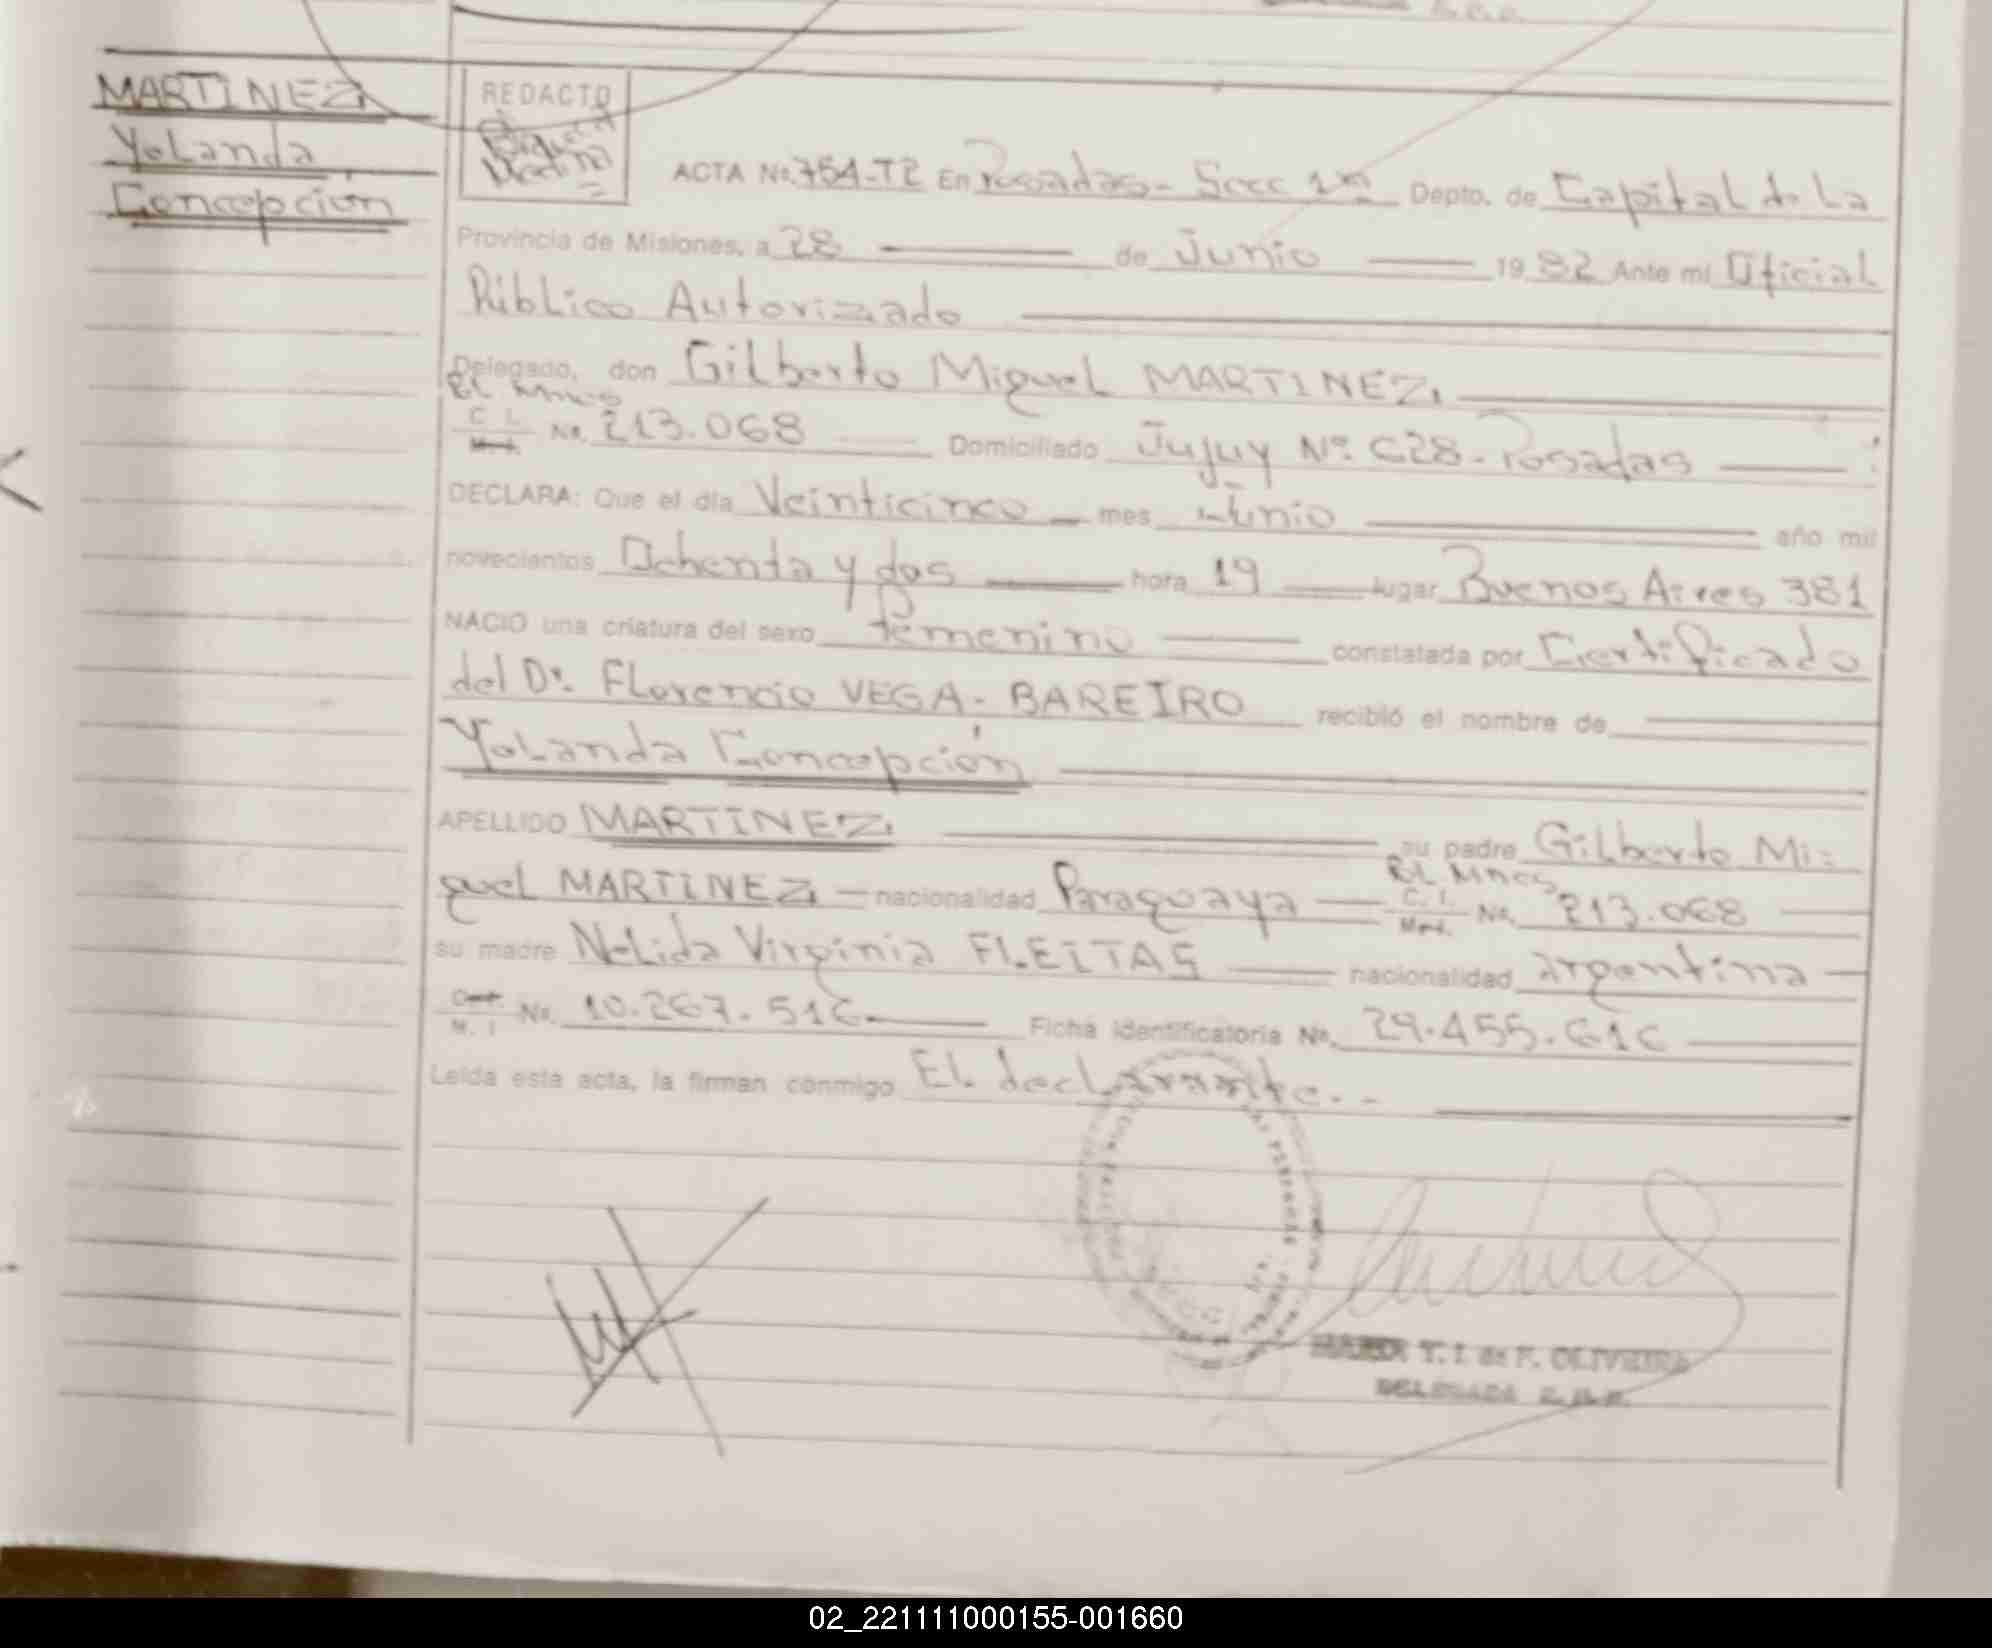 MARTINEZ
Yolanda
Concepción
REDACTO
Miguel
Medina
ACTA No. 754-T2 En Posadas- Secc 1ra Depto. de Capital de La
Provincia de Misiones, a 28 de Junio 1982 Ante mi Oficial
Público Autorizado
Delegado, don Gilberto Miguel MARTINEZ
C. I. No. 213.068 Domiciliado Jujuy Nº 628- Posadas
DECLARA: Que el día Veinticinco mes Junio año mil
novecientos Ochenta y dos hora 19 lugar Buenos Aires 381
NACIO una criatura del sexo femenino constatada por Certificado
del Dr. Florencio VEGA- BAREIRO recibió el nombre de
Yolanda Concepción
APELLIDO MARTINEZ su padre Gilberto Mi=
guel MARTINEZ nacionalidad Paraguaya C. I. No. 213.068
su madre Nelida Virginia FLEITAS nacionalidad argentina
M. I. No. 10.267.516 Ficha identificatoria No. 29.455.616
Leida esta acta, la firman conmigo El declarante.-
T. I. de F. OLIVEIRA
DELEGADA
02_221111000155-001660